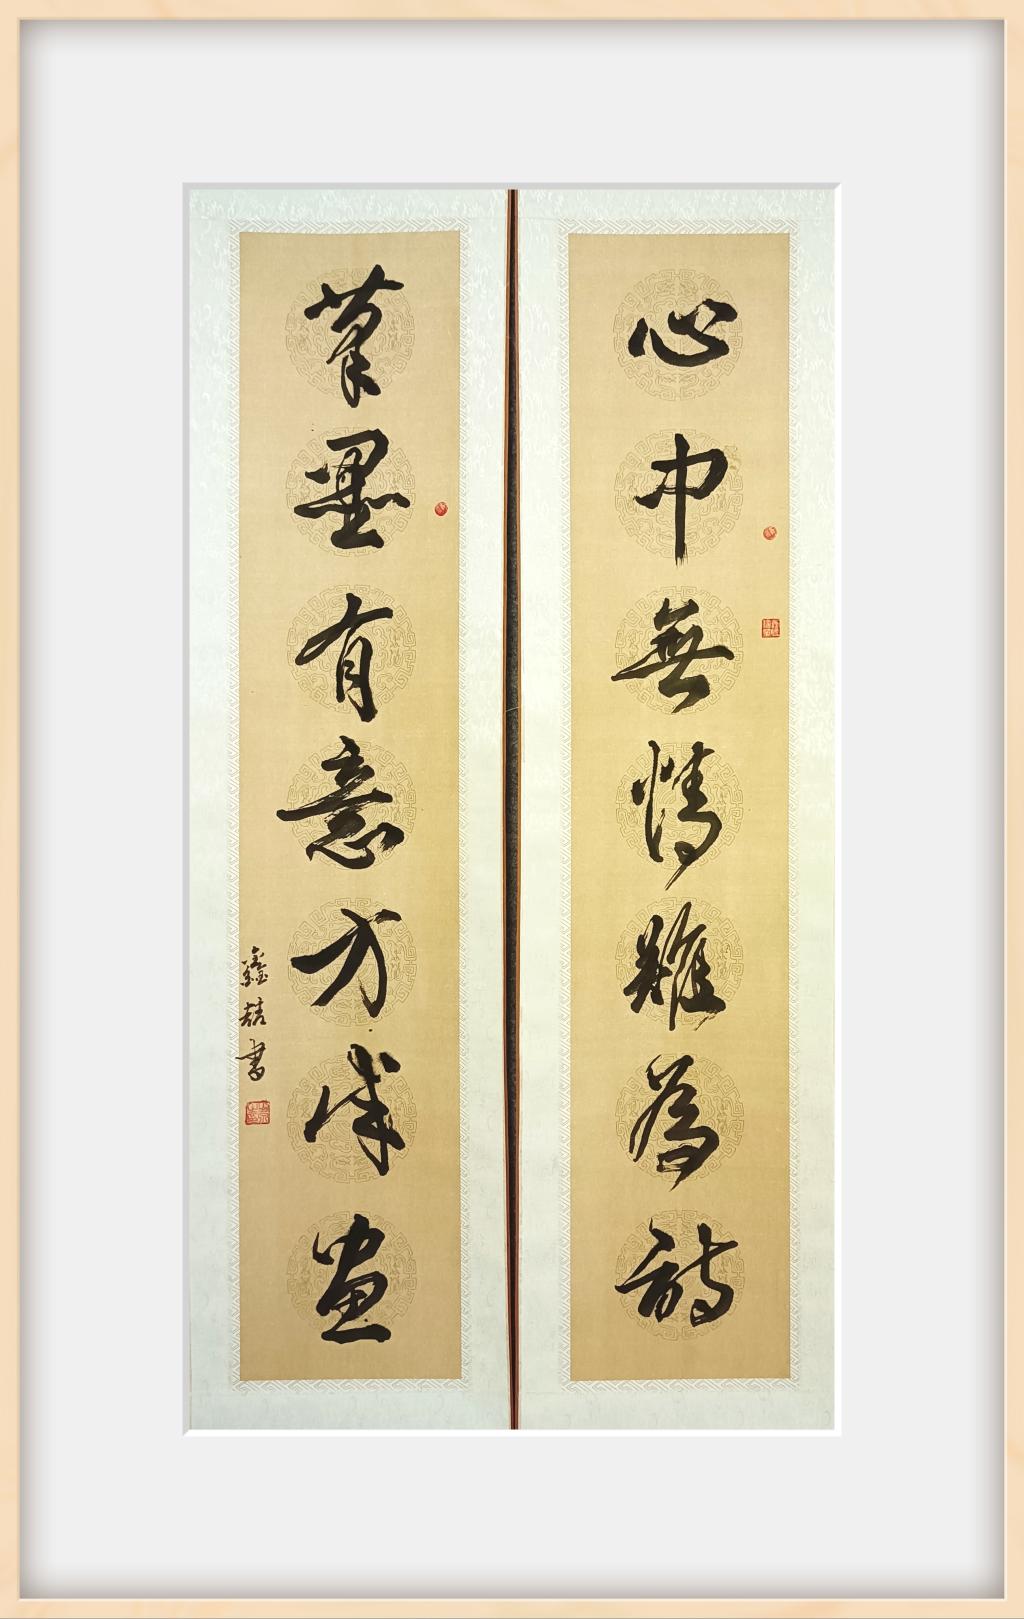 心中無情難為詩
筆墨有意方成畫
鑫喆書